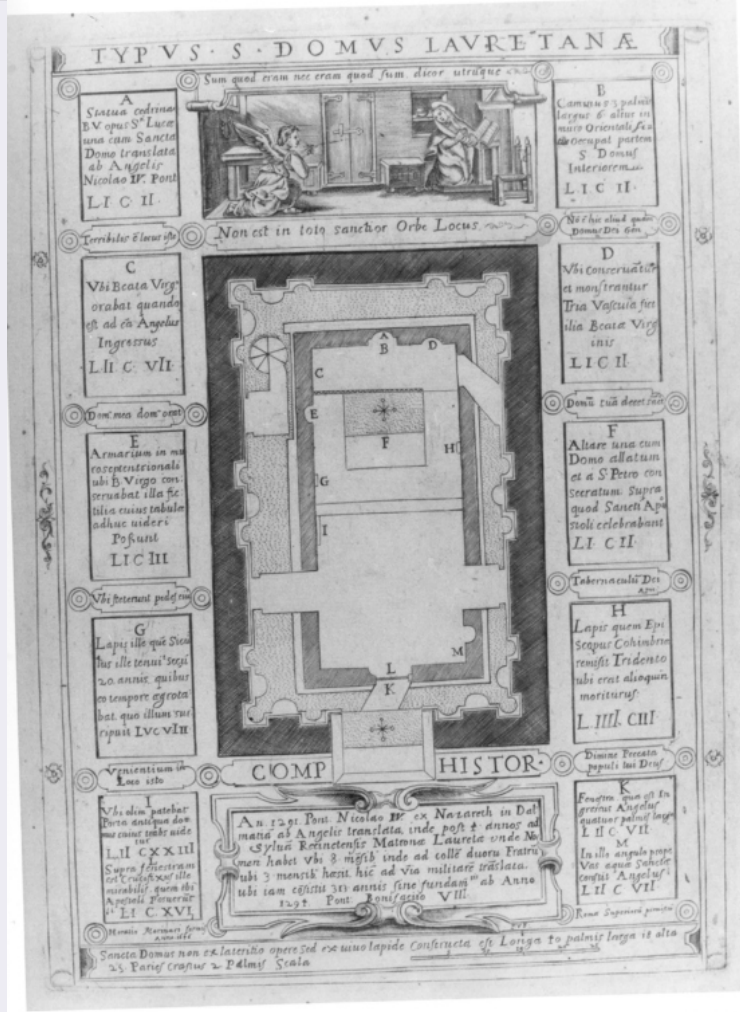 TYPVS · S · DOMVS LAVRETANÆ
Sum quod eram nec eram quod sum dicor utrũque
A
Statua cedrina
B.V. opus Sti Lucæ
una cum Sancta
Domo translata
ab Angelis
Nicolao IV. Pont
L I. C II.
B
Caminus 3 palmis
largus 6 altus in
muro Orientali
occupat partem
S Domus
Interiorem
L I. C II.
Terribilis ẽ locus iste
Non est in toto sanctior Orbe Locus.
Nõ ẽ hic aliud quam
Domus Dei Gen
C
Vbi Beata Virgo
orabat quando
est ad eã Angelus
Ingressus
L II C. VII
D
Vbi conservãtur
et monstrantur
Tria Vascula fict
ilia Beatæ Virg
inis
L I C II
Dom9 mea dom9 orat
Domũ tuã decet
E
Armarium in mu
ro septentrionali
ubi B. Virgo con
servabat illa fic
tilia cuius tabulæ
adhuc uideri
Possunt
L I C III
F
Altare una cum
Domo allatum
et a S. Petro con
secratum Supra
quod Sancti Apo
stoli celebrabant
L I. C II.
Vbi steterunt pedes eius
Tabernaculũ Dei
G
Lapis ille quẽ Sicu
lus ille tenuit secũ
20. annis, quibus
eo tempore ægrota
bat. quo illum sur
ripuit L V C VIII
H
Lapis quem Epi
scopus Cohimbriæ
remisit Tridento
ubi erat alioquin
moriturus.
L. IIII. C III
A
B
D
C
E
F
H
G
I
M
L
K
Venientium in
Loco isto
COMP HISTOR·
Dimitte Peccata
populi tui Deus
I
Vbi olim patebat
Porta antiqua do
mus cuius trabs uide
tur
L II C XXIII
L
Supra fenestram
est Crucifixus ille
mirabilis quem ibi
Apostoli Posuerũt
L I C XVI
An. 1291 Pont. Nicolao IV. ex Nazareth in Dal
matiã ab Angelis translata, inde post 4 annos ad
Syluã Recinetensis Matronæ Lauretæ unde No
men habet Vbi 8 mẽsib9 inde ad collẽ duorũ Fratrũ
ubi 3 mensib9 hæsit. hic ad Via militarẽ trãslata.
ubi iam cõsistit 311 annis sine fundam9 ab Anno
129 Pont. Bonifacio VIII.
K
Fenestra qua est In
gressus Angelus
quatuor palmis larga
L II C. VII
M
In illo angulo prope
Vas aquæ Sanctæ
consistit Angelus
L II C VII
Romæ Superiorũ
Sancta Domus non ex lateritio opere Sed ex uiuo lapide Constructa est Longa 40 palmis larga it alta
25 Paries Crassus 2 Palmis Scala